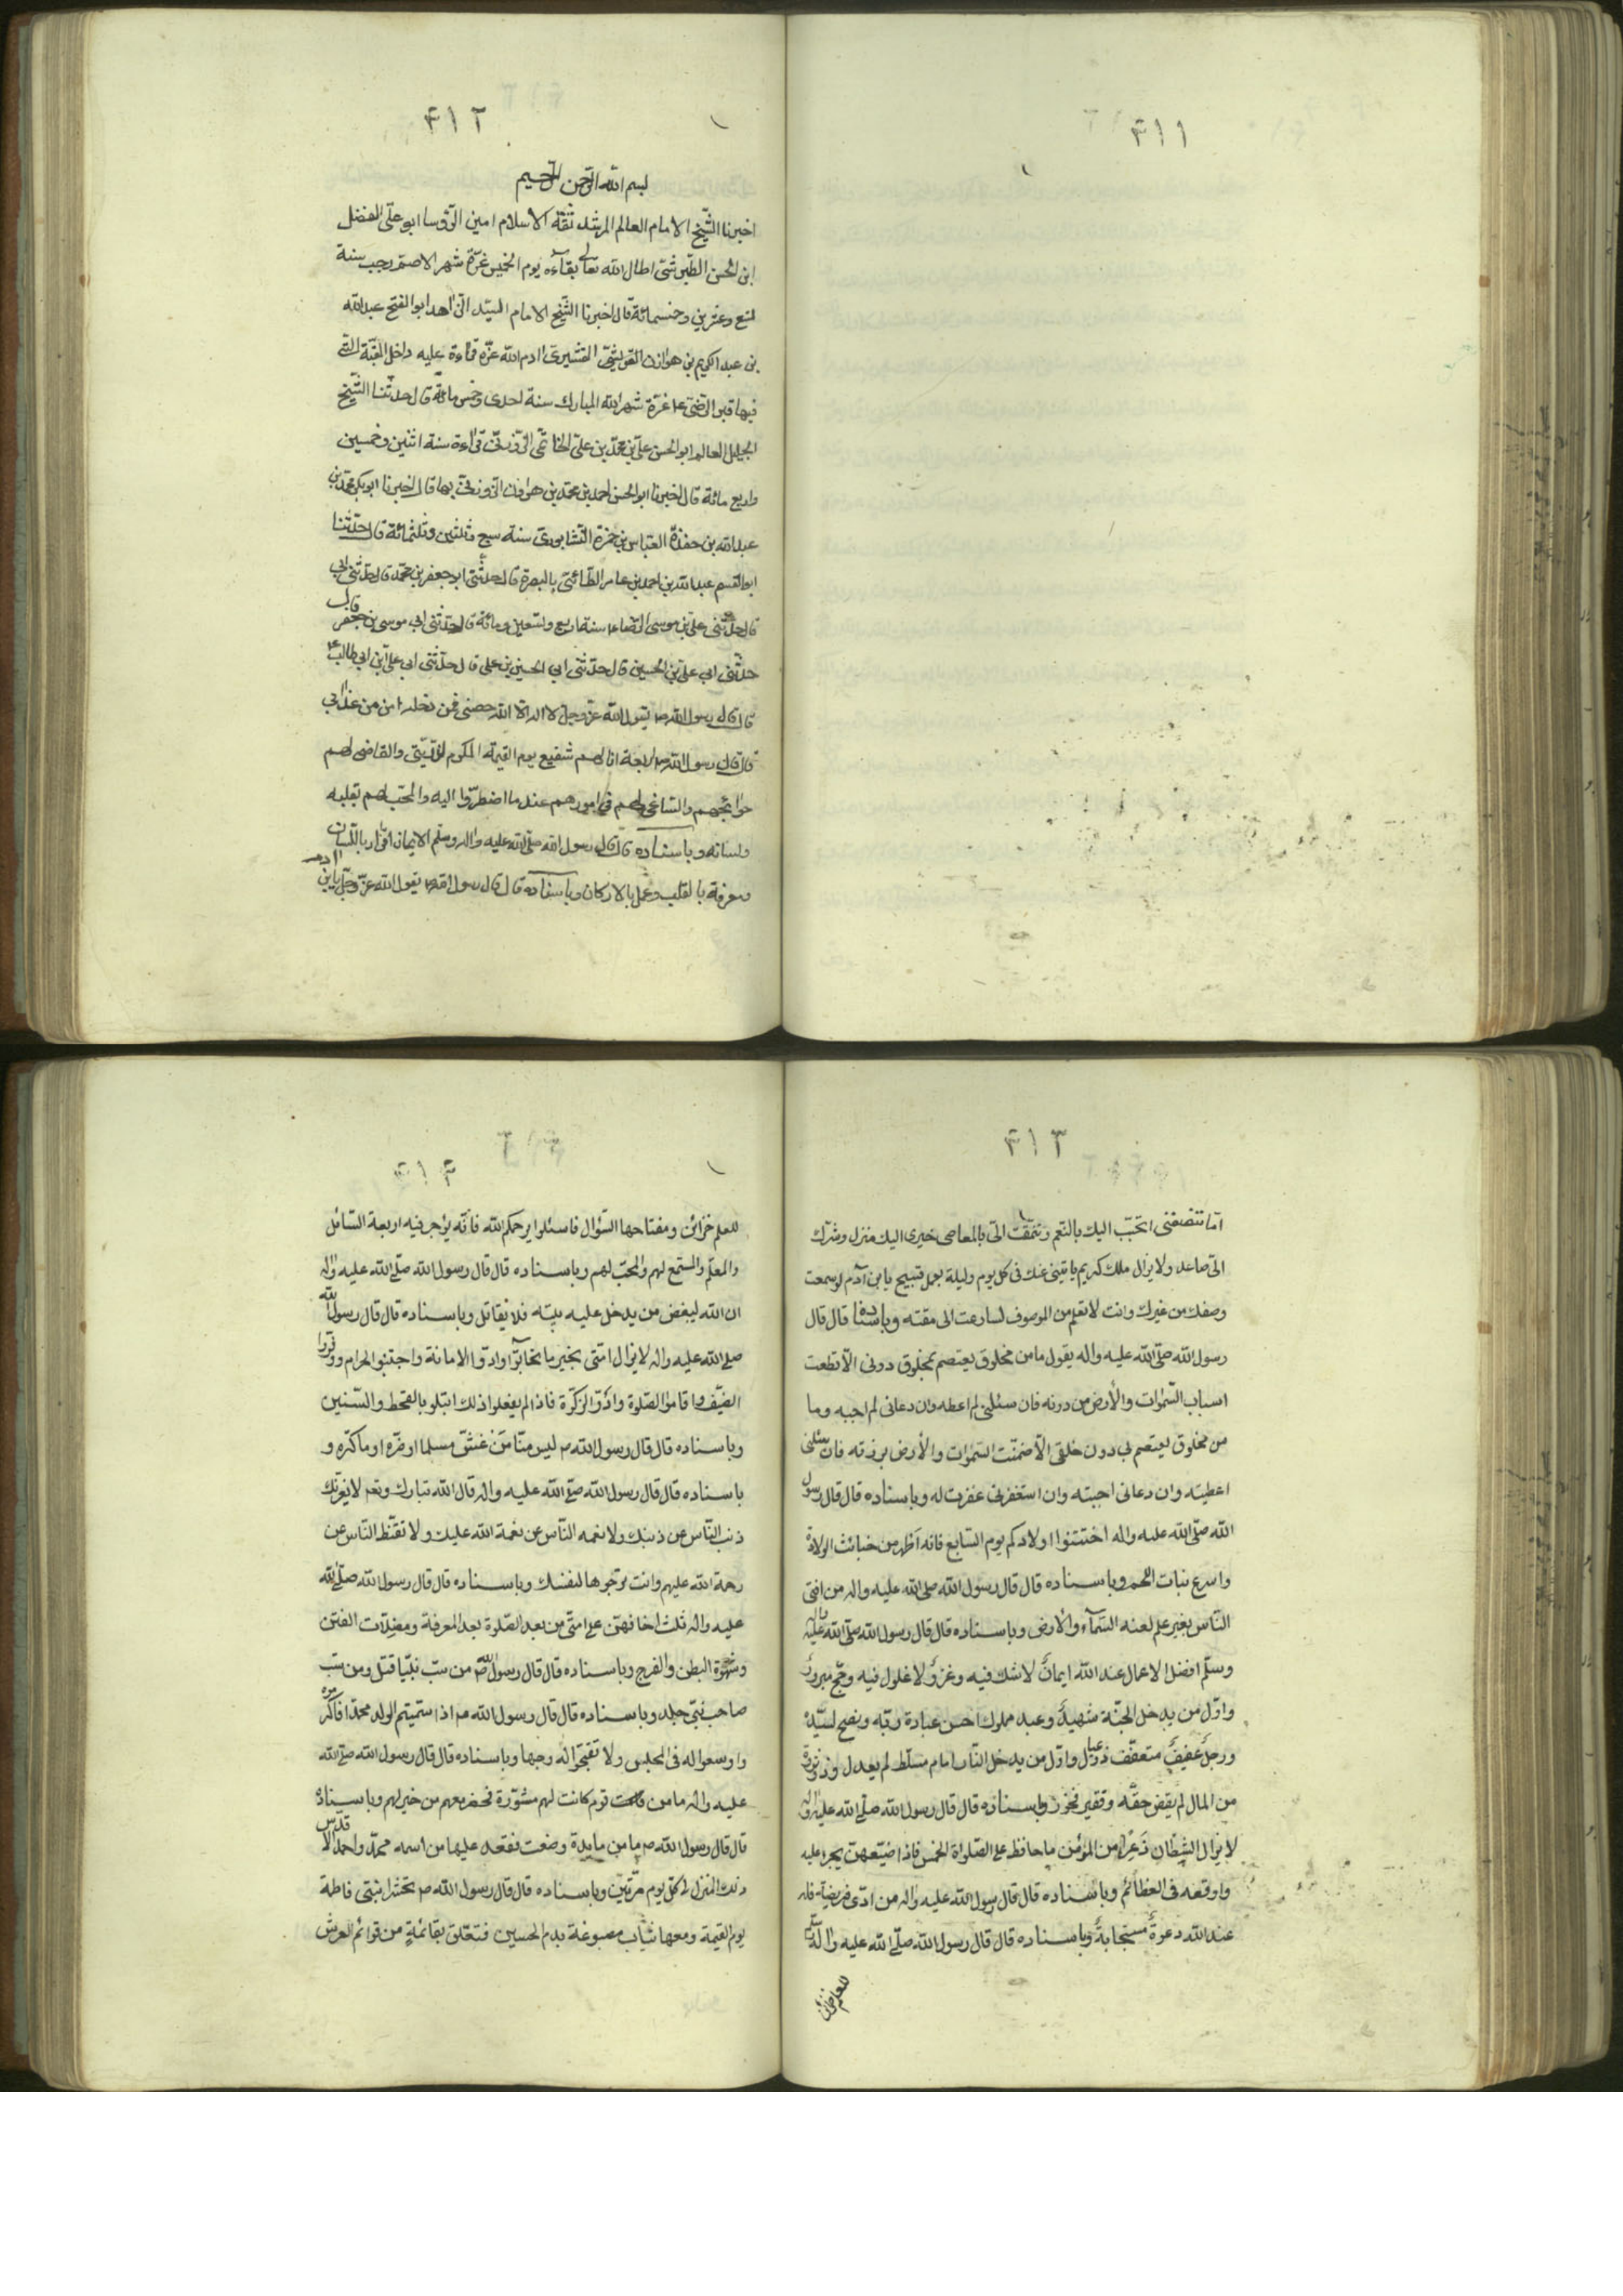 ٤١١
٤١٢
بسم الله الرحمن الرحيم
اخبرنا الشّيخ الامام العالم المرشد ثقة الاسلام امين الرّؤسا ابو علىّ الفضل
ابن الحسن الطّبرسّى اطال الله تعالى بقاءه يوم الخميس غرّة شهر الاصمّ رجب سنة
تسع وعشرين وخمسمائة قال اخبرنا الشّيخ الامام السيّد الزّاهد ابو الفتح عبد الله
بن عبد الكريم بن هوازن القشيرى ادام الله عزّه قراءة عليه داخل القبّة الّتى
فيها قبر الرّضى ع غرّة شهر الله المبارك سنة احدى وخمس مائة قال حدثنا الشّيخ
الجليل العالم ابو الحسن علىّ بن محمّد بن علىّ الحاتمى الزّوزنىّ قراءة سنة اثنين وخمسين
واربع مائة قال اخبرنا ابو الحسن احمد بن محمّد بن هرون الزّوزنىّ بها قال اخبرنا ابو بكر محمّد بن
عبد الله بن حفدة العبّاس بن حمزة النّشابورى سنة سبع وثلثين وثلثمائة قال حدّثنا
ابو القسم عبد الله بن احمد بن عامر الطّائىّ بالبصرة قال حدثنى ابى
قال حدّثنى علىّ بن موسى الرّضا ع سنة اربع وتسعين ومائة قال حدّثنى ابى موسى بن جعفر قال
حدّثنى ابى جعفر بن محمّد قال حدثنى ابى
حدّثنى ابى علىّ بن الحسين قال حدّثنى ابى الحسين بن على قال حدّثنى ابى علىّ ابن ابى طالب ع
قال قال رسول الله ص يقول الله عزّ وجلّ لا اله الّا الله حصنى فمن دخله امن من عذابى
قال قال رسول الله ص اربعة انا لهم شفيع يوم القيمة المكرم لذرّيّتى والقاضى لهم
حوائجهم والسّاعى لهم فى امورهم عند ما اضطرّوا اليه والمحبّ لهم بقلبه
ولسانه وباسناده قال قال رسول الله صلّى الله عليه واله وسلّم الايمان اقرار باللّسان
ومعرفة بالقلب وعمل بالاركان وباسناده قال قال رسول الله ص يقول الله عزّ وجلّ يابن ادم
٤١٣
امّا تنصفنى اتحبّب اليك بالنّعم وتتمقّت الىّ بالمعاصى خيرى اليك منزل وشرّك
الىّ صاعد ولا يزال ملك كريم ياتينى عنك فى كل يوم وليلة بعمل قبيح يا بن آدم لو سمعت
وصفك من غيرك وانت لا تعلم من الموصوف لسارعت الى مقته وباسناده قال قال
رسول الله صلّى الله عليه واله يقول ما من مخلوق يعتصم بمخلوق دونى الّا قطعت
اسباب السّموات والأرض من دونه فان سئلنى لم اعطه وان دعانى لم اجبه وما
من مخلوق يعتصم بى دون خلقى الّا ضمنّت السّموات والأرض برزقه فان سئلنى
اعطيته وان دعانى اجبته وان استغفرنى غفرت له وباسناده قال قال رسول
الله صلّى الله عليه واله اختتنوا اولادكم يوم السّابع فانه اطهر من خبائث الولادة
واسرع نبات اللّحم وباسناده قال قال رسول الله صلى الله عليه واله من افتى
النّاس بغير علم لعنه السّماء والارض وباسناده قال قال رسول الله صلّى الله عليه واله
وسلّم افضل الاعمال عند الله ايمان لا شك فيه وغزو لا غلول فيه وحجّ مبرور
واوّل من يدخل الجنّة شهيد وعبد مملوك احسن عبادة ربّه ونصح لسيّده
ورجل عفيف متعفّف ذو عيال واوّل من يدخل النّار امام مسلّط لم يعدل وذو ثروة
من المال لم يقض حقّه وفقير فخور وباسناده قال قال رسول الله صلّى الله عليه واله
لا يزال الشيطان ذعرا من المؤمن ما حافظ على الصّلواة الخمس فاذا ضيّعهنّ تجرء عليه
واوقعه فى العظائم وباسناده قال قال رسول الله عليه واله من ادّى فريضة فله
عند الله دعوة مستجابة وباسناده قال قال رسول الله صلّى الله عليه واله
للعلم خزائن
٤١٤
للعلم خزائن ومفتاحها السّؤال فاسئلوا يرحمكم الله فانّه يؤجر فيه اربعة السّائل
والمعلّم والمستمع لهم والمحبّ لهم وباسناده قال قال رسول الله صلّى الله عليه واله
ان الله ليبغض من يدخل عليه بيته فلا يقاتل وباسناده قال قال رسول الله
صلى الله عليه واله لا يزال امّتى بخير ما تحابّوا وادّوا الامانة واجتنبوا الحرام ووقروا
الضيّف واقاموا الصّلوة وادّو الزكوة فاذا لم يفعلوا ذلك ابتلو بالقحط والسّنين
وباسناده قال قال رسول الله ص ليس منّا من غشّ مسلما او ضرّه او ماكره و
باسناده قال قال رسول الله صلّى الله عليه واله قال الله تبارك وتعالى لا يغرّنّك
ذنب النّاس عن ذنبك ولا نعمه النّاس عن نعمة الله عليك ولا تقنّط النّاس عن
رحمة الله عليهم وانت ترجوها لنفسك وباسناده قال قال رسول الله صلّى الله
عليه واله ثلث اخافهنّ على امّتى من بعد الضّلوة بعد المعرفة ومضلّات الفتن
وشهوة البطن والفرج وباسناده قال قال رسول الله ص من سبّ نبيّا قتل ومن سبّ
صاحب نبىّ جلد وباسناده قال قال رسول الله ص اذا سمّيتم الولد محمّدا فاكرموه
واوسعوا له فى المجلس ولا تقبّحوا له وجها وباسناده قال قال رسول الله صلّى الله
عليه واله ما من قوم كانت لهم مشورة فحضر معهم من خير لهم وباسناده
قال قال رسول الله ص ما من مايدة وضعت فقعد عليها من اسمه محمّد واحمد الّا قدّس
ذلك المنزل فى كلّ يوم مرّتين وباسناده قال قال رسول الله ص تحشر ابنتى فاطمة
يوم القيمة ومعها ثياب مصبوغة بدم الحسين فتعلّق بقائمة من قوائم العرش